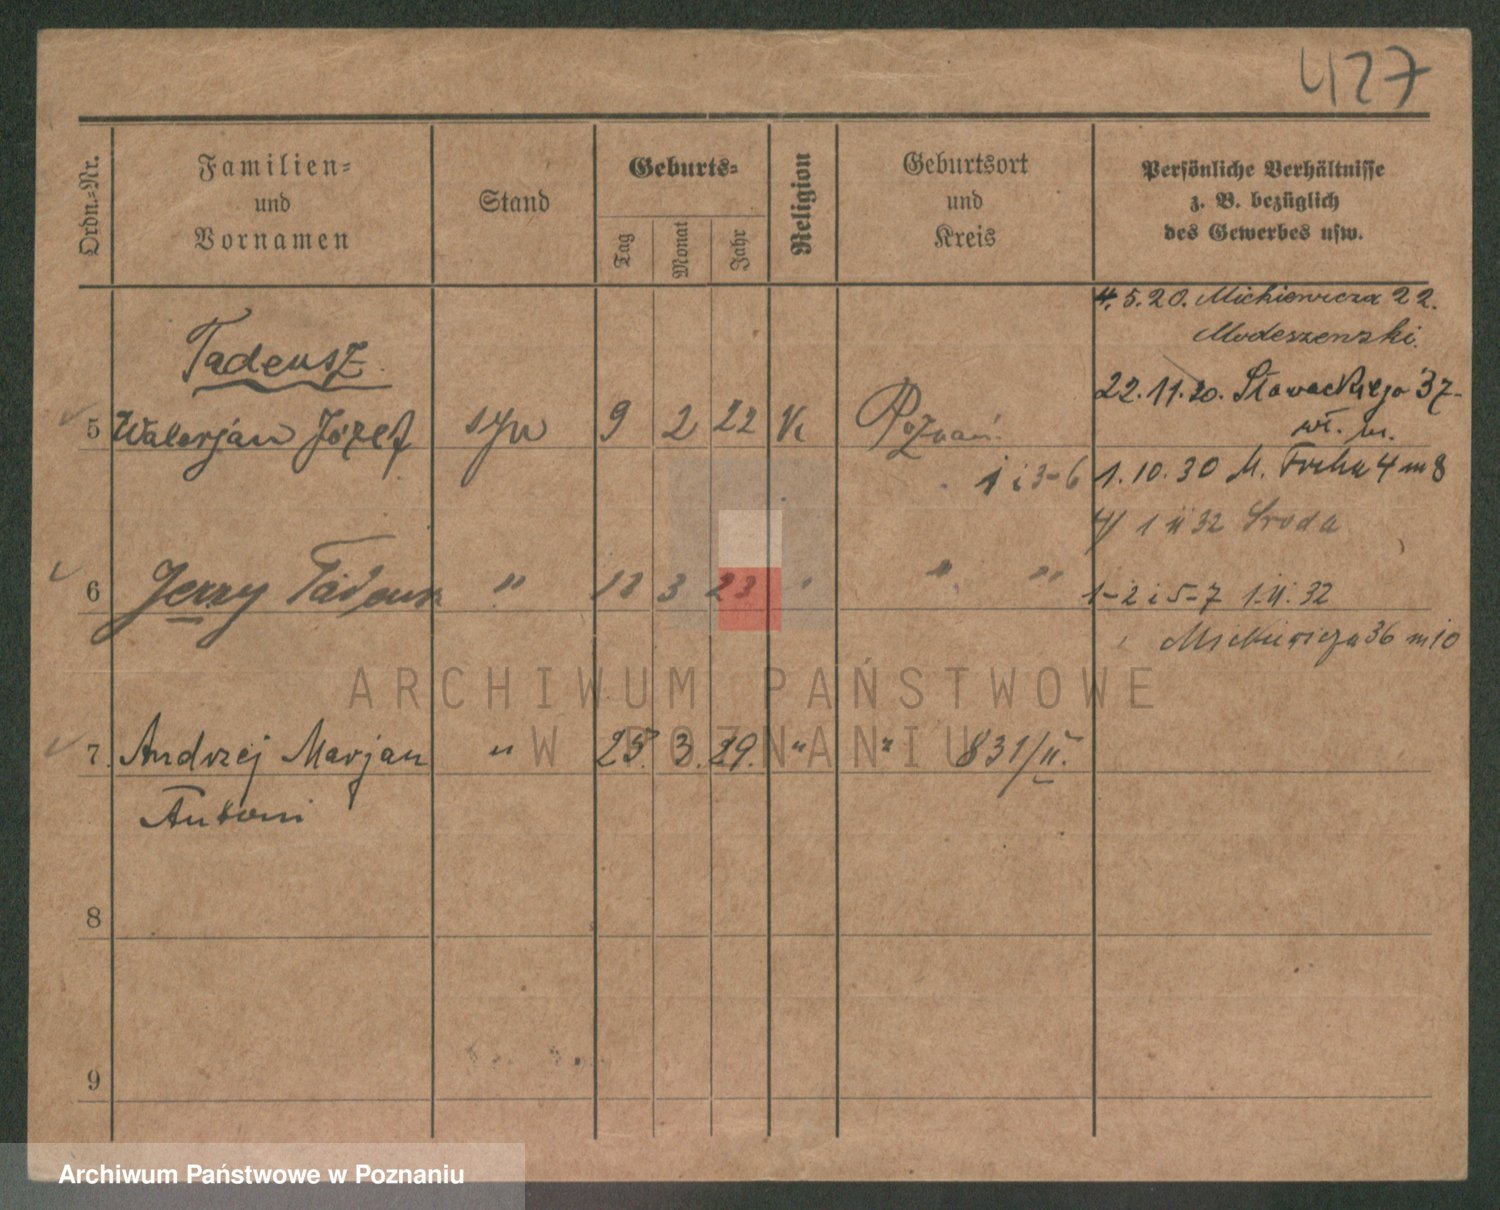 427
Ordn.-Nr.
Familien-
und
Vornamen
Stand
Geburts-
Tag
Monat
Jahr
Religion
Geburtsort
und
Kreis
Persönliche Verhältnisse
z. B. bezüglich
des Gewerbes usw.
4.5.20. Mickiewicza 22.
Tadeusz
22.11.20. Słowackiego 37
5 Walerjan Józef syn 9 2 22 K Poznań.
1 i 3-6 1.10.30 M. Focha 4 m 8
4/ 1 II 32 Środa
6 Jerzy Tadeusz " 18 3 23 " " "
1-2 i 5-7 1.II.32
Mickiewicza 36 m 10
ARCHIWUM PAŃSTWOWE
W POZNANIU
7. Andrzej Marjan " 25. 3. 29. " " 831/II.
Antoni
8
9
Archiwum Państwowe w Poznaniu